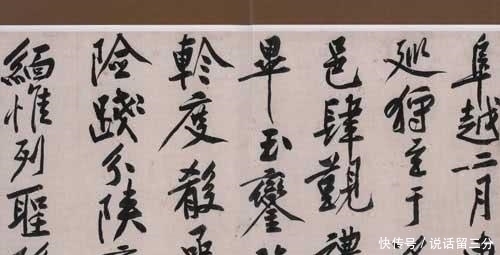 阜越二月
巡狩至于
邑肆覲禮
畢玉鑾
軫度殽
險踐分陝
緬惟列聖
快传号/说话留三分